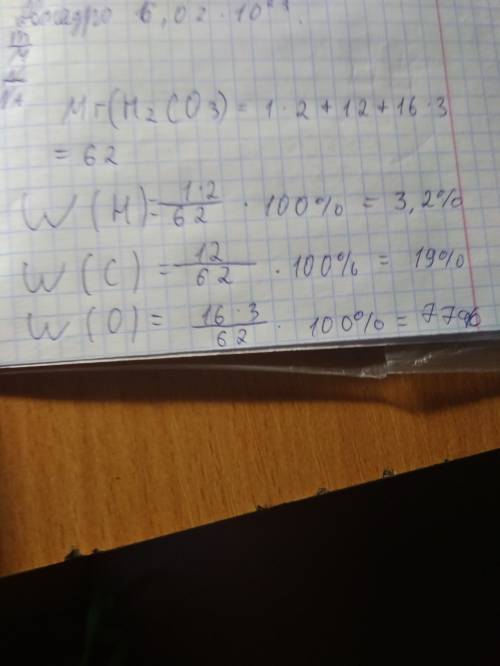 6,02 · 10
Mr(H₂CO3) = 1·2 + 12 + 16·3
= 62
W(H) = 1·2/62 · 100% = 3,2%
W(C) = 12/62 · 100% = 19%
W(O) = 16·3/62 · 100% = 77%